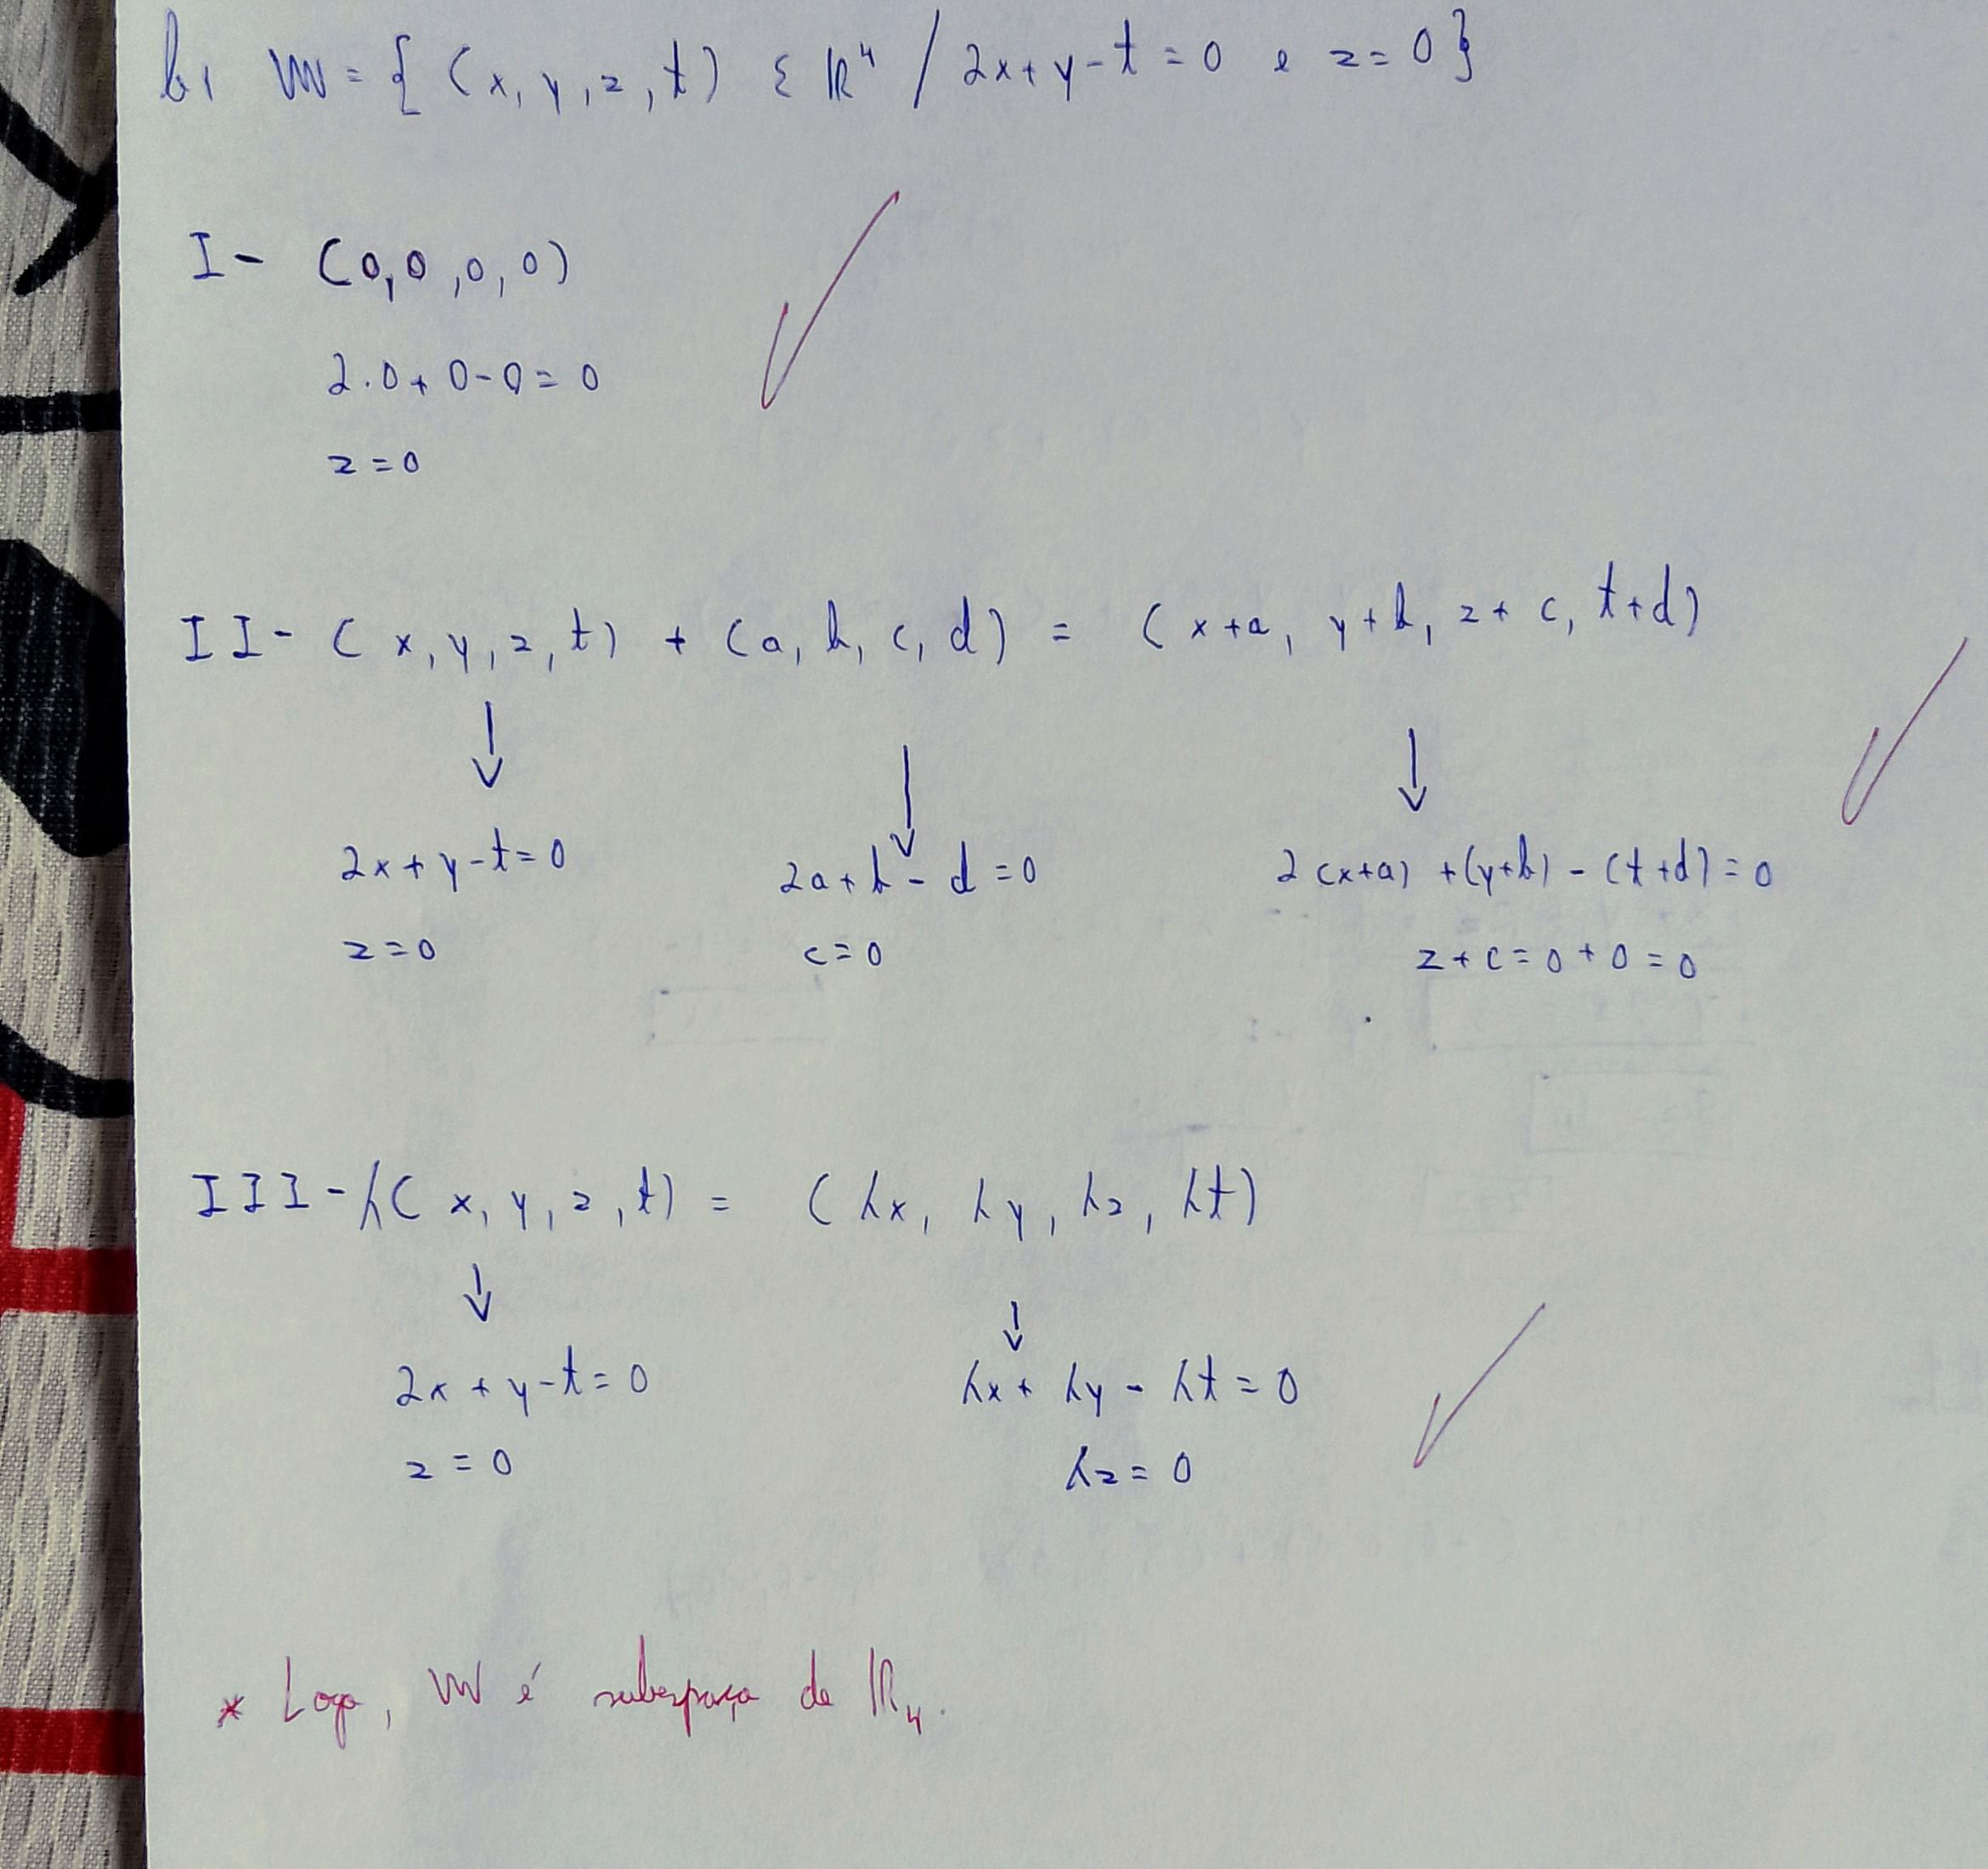 b) W = { (x, y, z, t) ε ℝ⁴ / 2x + y - t = 0 e z = 0 }
I - (0, 0, 0, 0)
2.0 + 0 - 0 = 0
z = 0
II - (x, y, z, t) + (a, b, c, d) = (x + a, y + b, z + c, t + d)
↓ ↓ ↓
2x + y - t = 0 2a + b - d = 0 2(x+a) + (y+b) - (t+d) = 0
z = 0 c = 0 z + c = 0 + 0 = 0
III - λ(x, y, z, t) = (λx, λy, λz, λt)
↓ ↓
2x + y - t = 0 λx + λy - λt = 0
z = 0 λz = 0
* Logo, W é subespaço de ℝ₄.